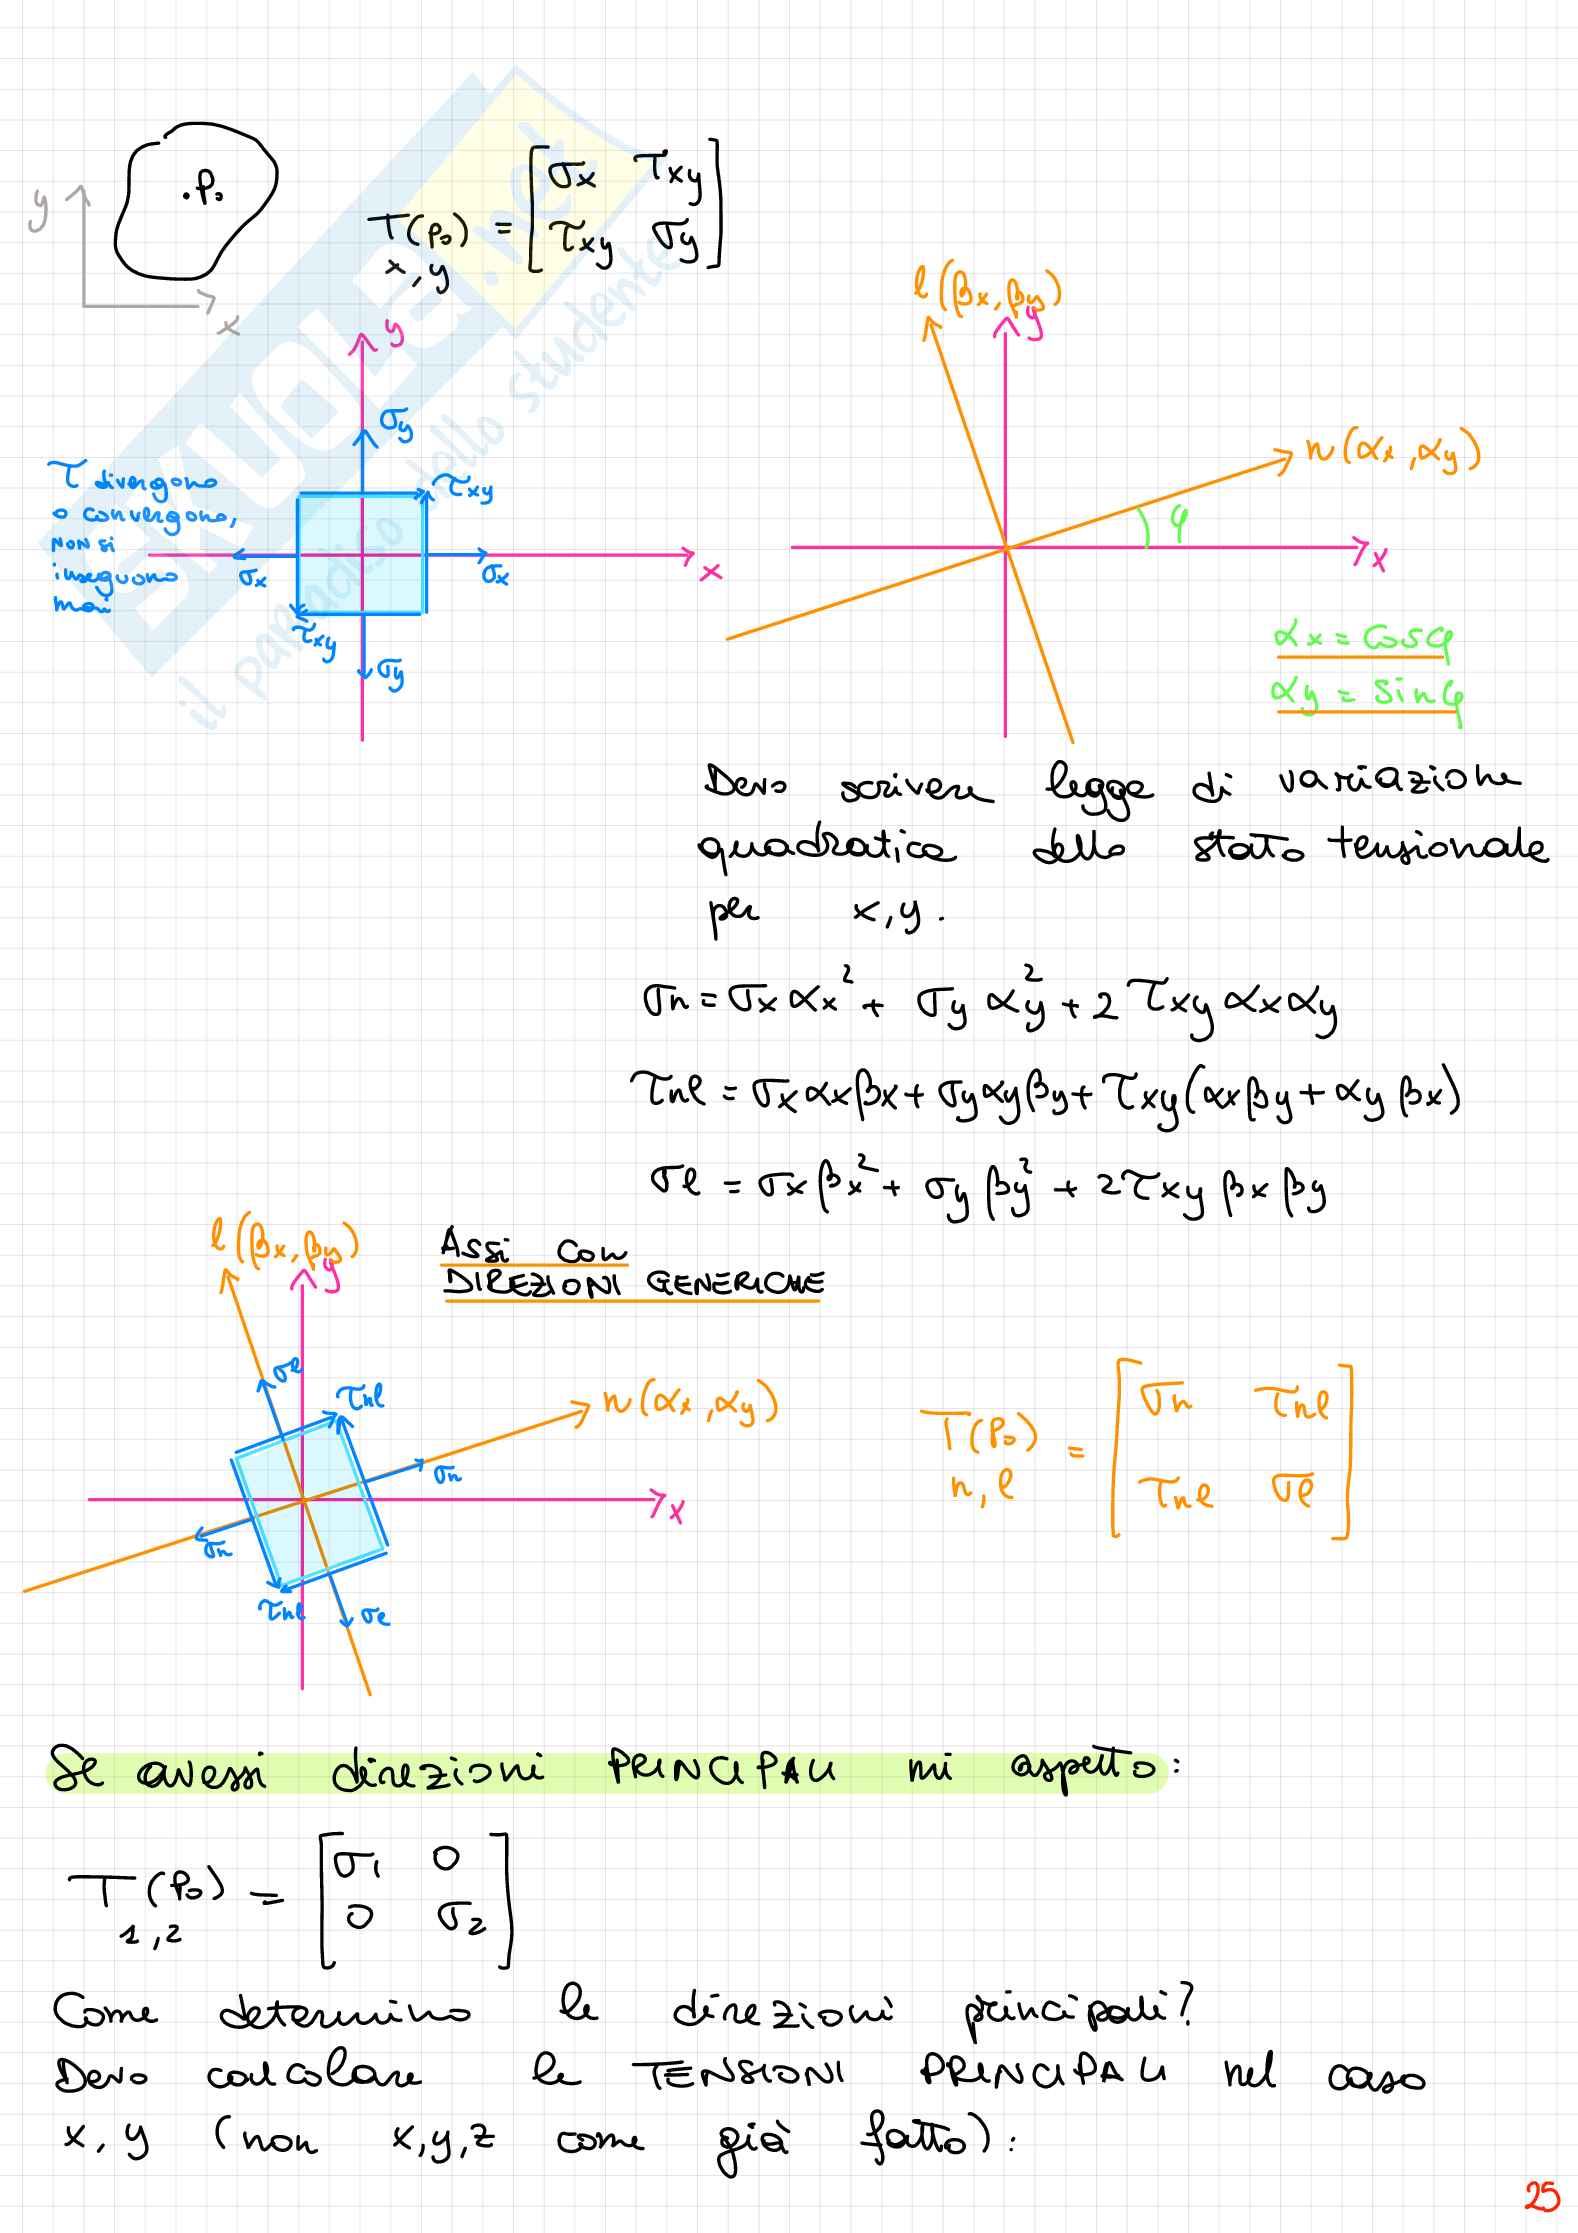 .P₀
y
x
T(P₀) = [σx τxy
x,y τxy σy]
y
σy
τxy
τ divergono
o convergono,
NON si
inseguono
mai
σx
σx
x
τxy
σy
l(βx, βy)
y
n(αx, αy)
φ
x
αx = cosφ
αy = sinφ
SKUOLA.net
il paradiso dello studente
Devo scrivere legge di variazione
quadratica dello stato tensionale
per x,y.
σn = σx αx² + σy αy² + 2 τxy αx αy
τnl = σx αx βx + σy αy βy + τxy (αx βy + αy βx)
σl = σx βx² + σy βy² + 2 τxy βx βy
l(βx, βy)
y
ASSI CON
DIREZIONI GENERICHE
σl
τnl
n(αx, αy)
σn
x
σn
τnl
σl
T(P₀) = [σn τnl
n,l τnl σl]
Se avessi direzioni PRINCIPALI mi aspetto:
T(P₀) = [σ1 0
1,2 0 σ2]
Come determino le direzioni principali?
Devo calcolare le TENSIONI PRINCIPALI nel caso
x,y (non x,y,z come già fatto):
25